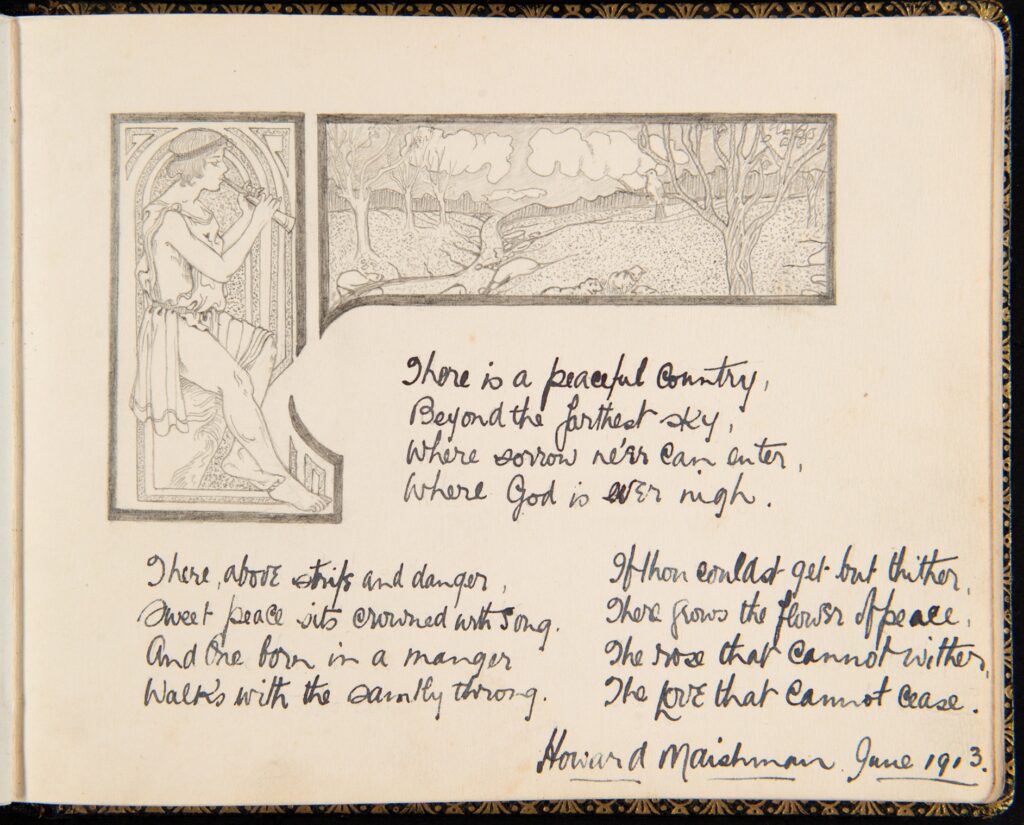 There is a peaceful country,
Beyond the farthest sky,
Where sorrow ne'er can enter,
Where God is ever nigh.
There, above strife and danger,
Sweet peace sits crowned with song.
And One born in a manger
Walks with the saintly throng.
If thou couldst get but thither,
There grows the flower of peace,
The rose that cannot wither,
The love that cannot cease.
Howard Maishman. June 1913.